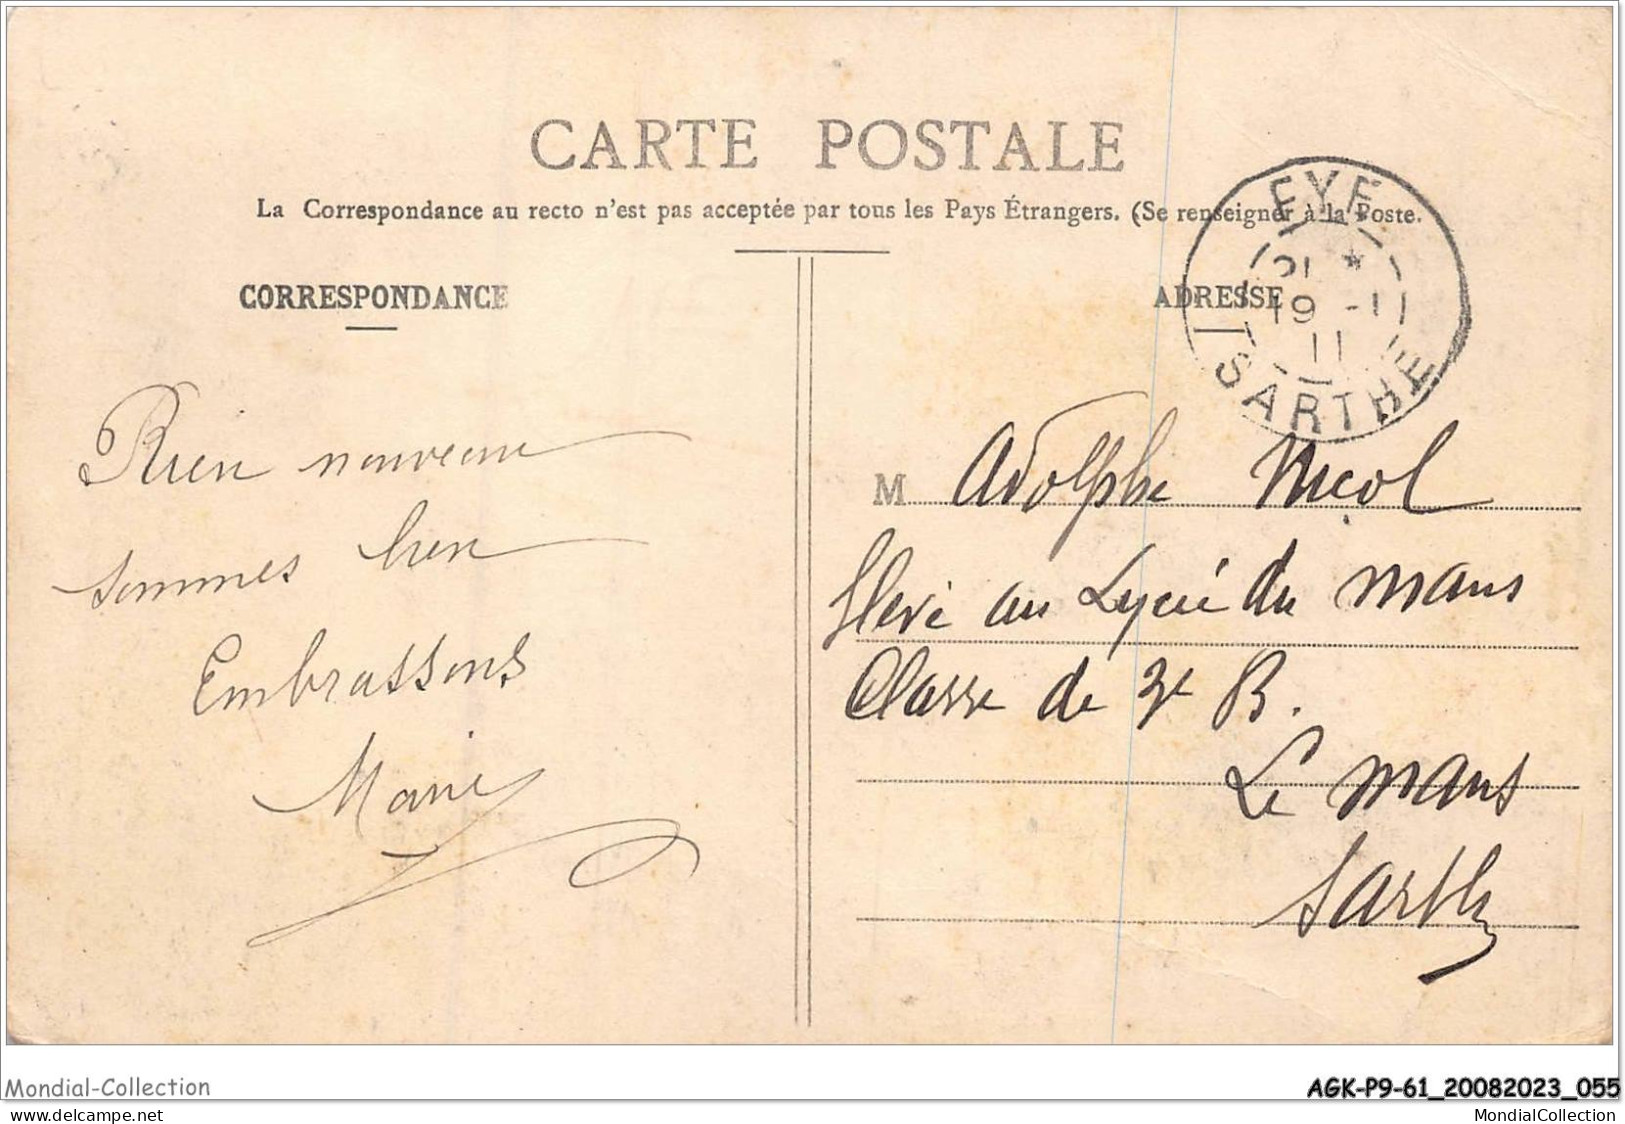 CARTE POSTALE
La Correspondance au recto n'est pas acceptée par tous les Pays Étrangers. (Se renseigner à la Poste.
CORRESPONDANCE
ADRESSE
EYF
21 *
19 -1
11
SARTHE
Rien nouveau
sommes bien
Embrassons
Marie
M Adolphe Nicol
Elève au Lycée du Mans
Classe de 3e B.
Le Mans
Sarthe
Mondial-Collection
AGK-P9-61_20082023_055
MondialCollection